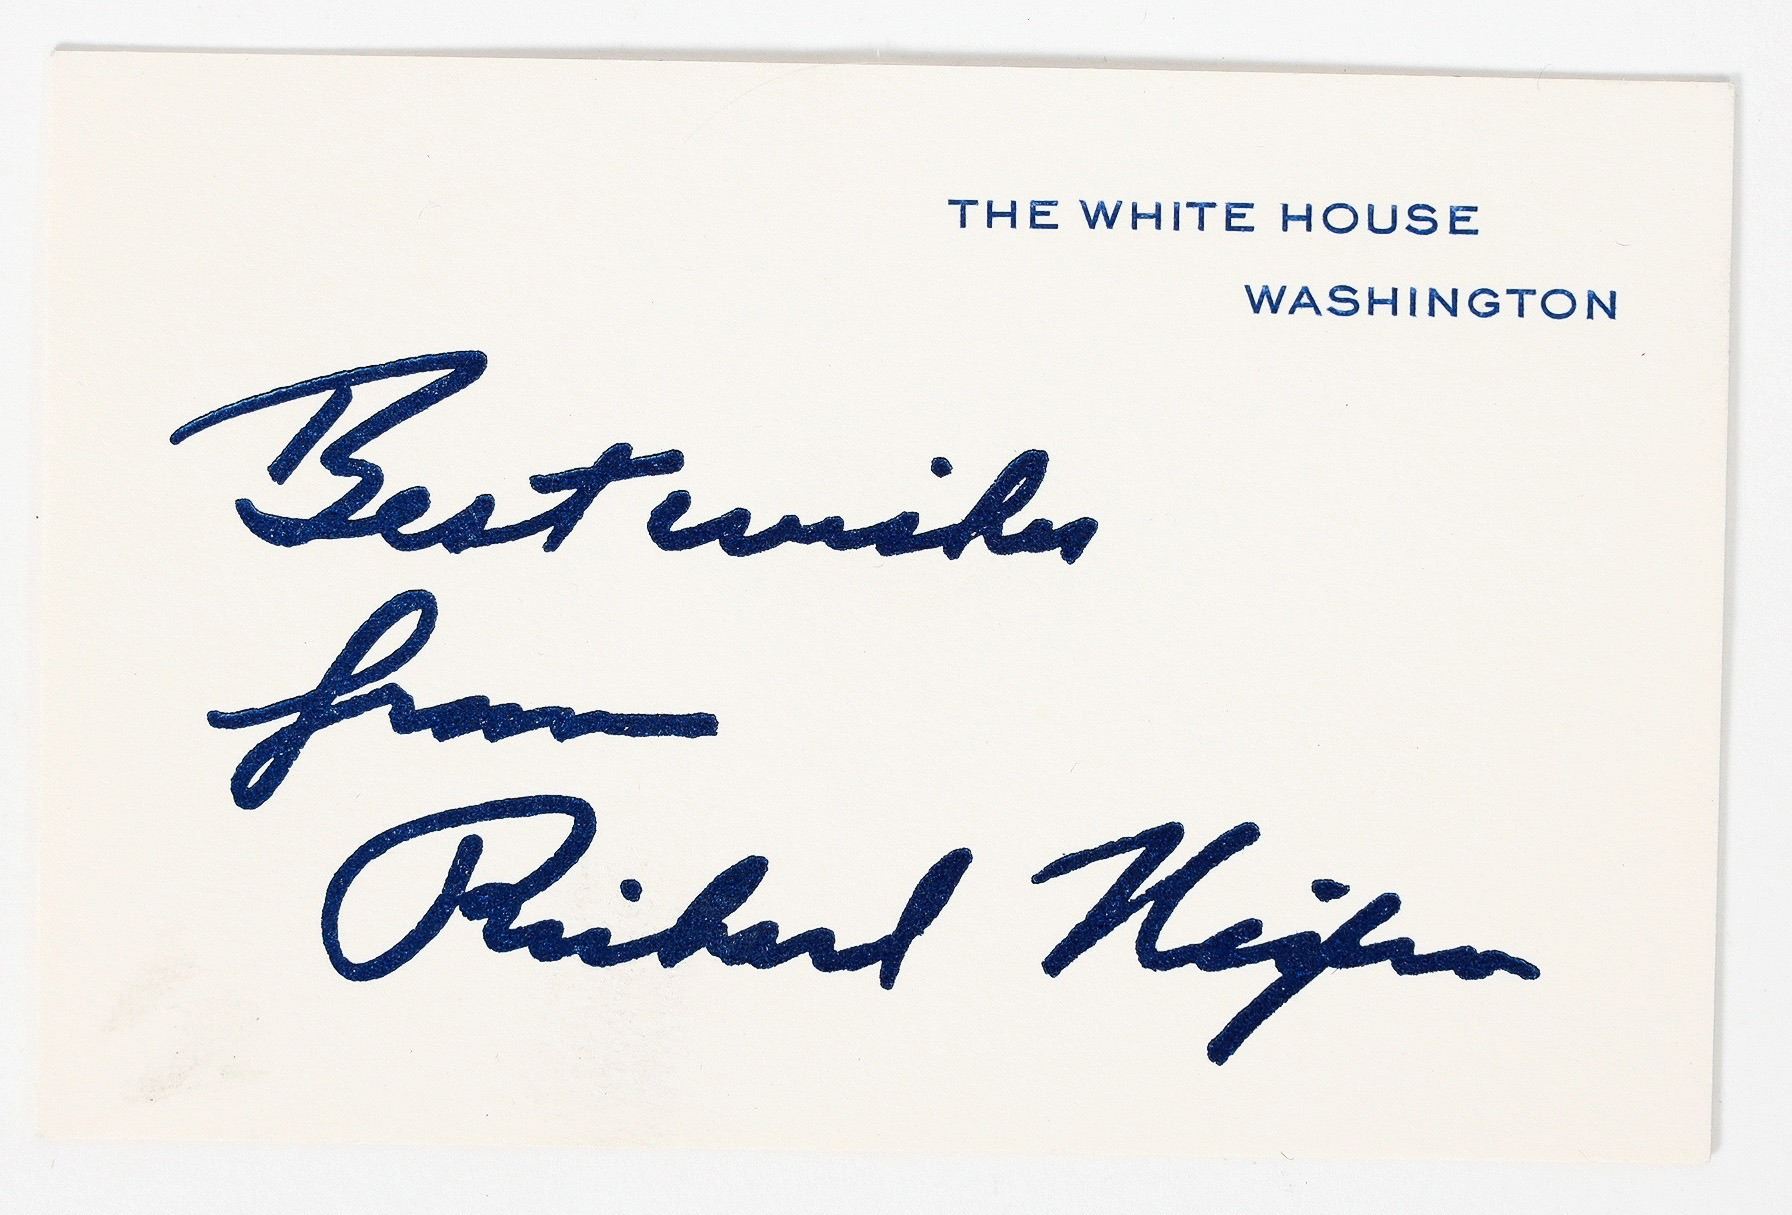 THE WHITE HOUSE
WASHINGTON
Best wishes
from
Richard Nixon